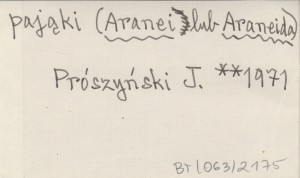 pająki (Aranei lub Araneida)
Prószyński J. **1971
BT/063/2175